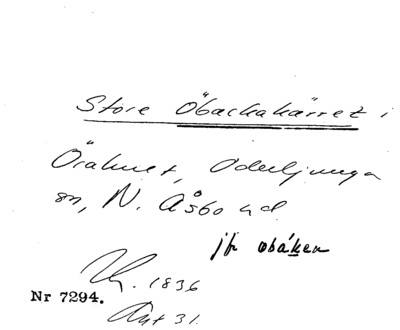 Store Öbackakärret i
Örahult, Oderljunga
sn, N. Åsbo hd
jfr obåken
1836
Nr 7294.
Akt 31.